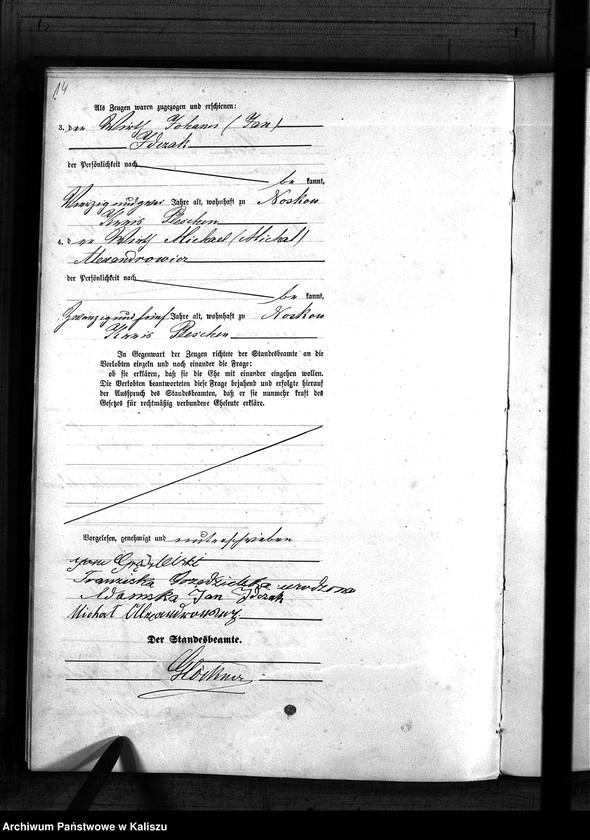 14
Als Zeugen waren zugezogen und erschienen:
3. der Wirth Johann (Jan)
Idczak
der Persönlichkeit nach
be kannt,
Vierzig und zwei Jahre alt, wohnhaft zu Noskow
Kreis Pleschen
4. der Wirth Michael (Michal)
Alexandrowicz
der Persönlichkeit nach
be kannt,
Zwanzig und fünf Jahre alt, wohnhaft zu Noskow
Kreis Pleschen
In Gegenwart der Zeugen richtete der Standesbeamte an die
Verlobten einzeln und nach einander die Frage:
ob sie erklären, daß sie die Ehe mit einander eingehen wollen.
Die Verlobten beantworteten diese Frage bejahend und erfolgte hierauf
der Ausspruch des Standesbeamten, daß er sie nunmehr kraft des
Gesetzes für rechtmäßig verbundene Eheleute erkläre.
Vorgelesen, genehmigt und unterschrieben
Franziska urodzona
Adamska Jan Idczak
Michał
Der Standesbeamte.
Glöckner
Archiwum Państwowe w Kaliszu